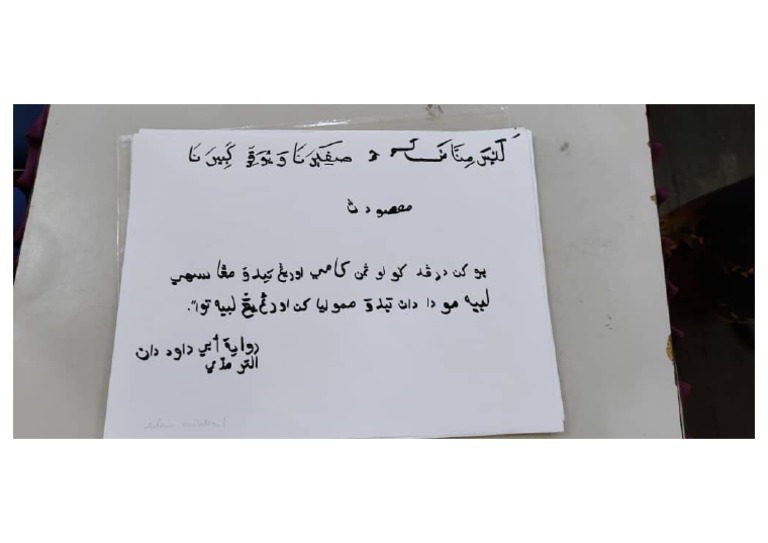 لَيْسَ مِنَّا صَغِيْرَنَا وَيُوَقِّرْ كَبِيْرَنَا
مقصودڽ
بوكن درڤد كولوڠن كامي اورڠ تيدق مڠاسيهي
لبيه مودا دان تيدق مموليا كن اورڠ يڠ لبيه توا".
رواية أبي داود دان
الترمذي